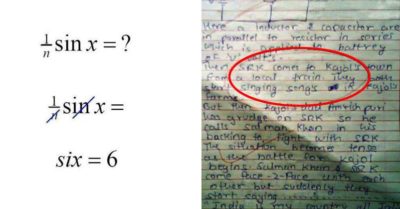 1/n sin x = ?
1/n sin x =
six = 6
Here a inductor & capacitor are
in parallel to resistor in series
which is applied to battrey
of 'V' volts.
Then SRK comes to Kajol's town
from a local train. They
start singing songs in Kajol's
farms
But then Kajol's dad Amrish puri
has grudge on SRK so he
calls salman Khan in his
backing to fight with SRK
The situation becomes tense
as the battle for Kajol
begins. Salman Khan & SRK
come face-2-face with each
other but suddenly they
start saying
India is my country all